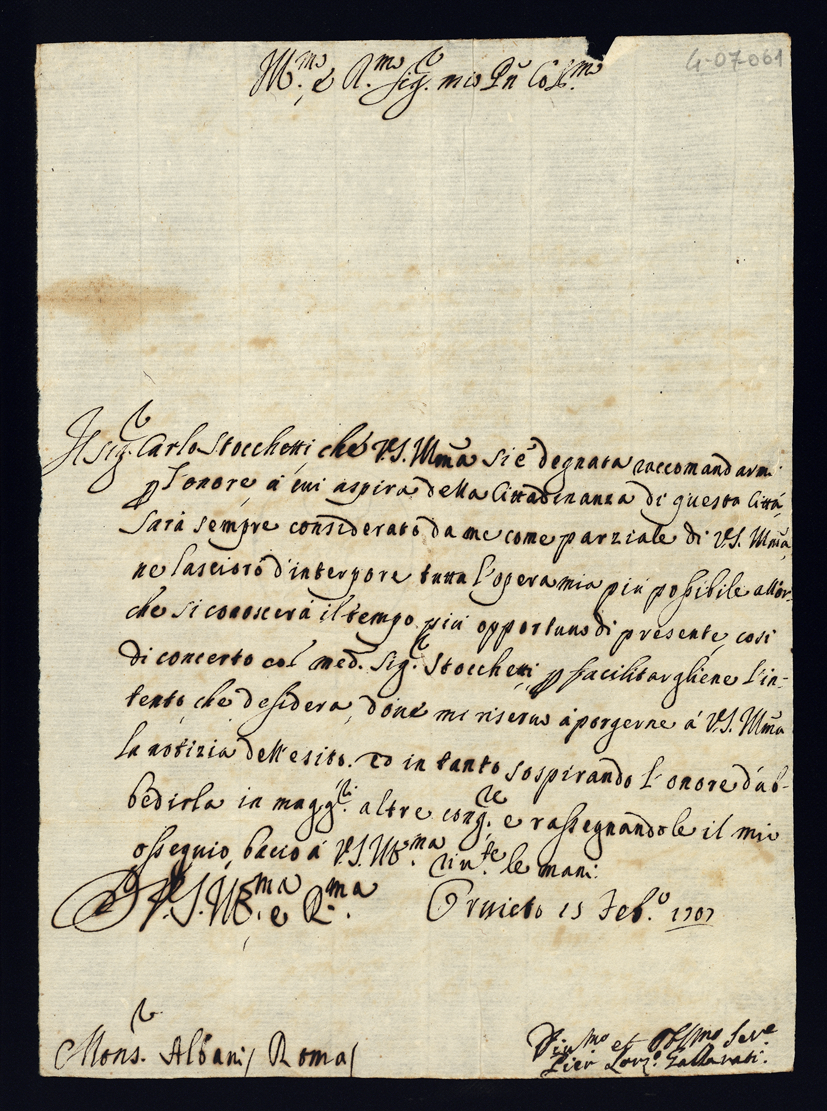 4-07-061
Ill.mo e R.mo Sig.r mio Pñ Col.mo
Il Sig.r Carlo Stocchetti che V.S. Illma si è degnata raccomandarmi
p l'onore à cui aspira della Cittadinanza di questa Città,
sarà sempre considerato da me come parziale di V.S. Illma,
ne lascierò d'interpore tutta l'opera mia più possibile allor-
che si conoscerà il tempo più opportuno di presente, così
di concerto col med. Sig.r Stocchetti p facilitargliene l'in-
tento che desidera, mi riservo à porgerne à V.S. Illma
la notizia dell'esito. Ed in tanto sospirando l'onore d'ub-
bidirla in magg.ri altre cong.re e rassegnandole il mio
ossequio, bacio à V.S. Ill.ma riv.te le mani.
Di V.S. Ill.ma e R.ma Orvieto 15 Feb.o 1707
Mons.r Albani / Roma /
Div.mo et Obl.mo Ser.e
Pier Lor.zo Gallarati.